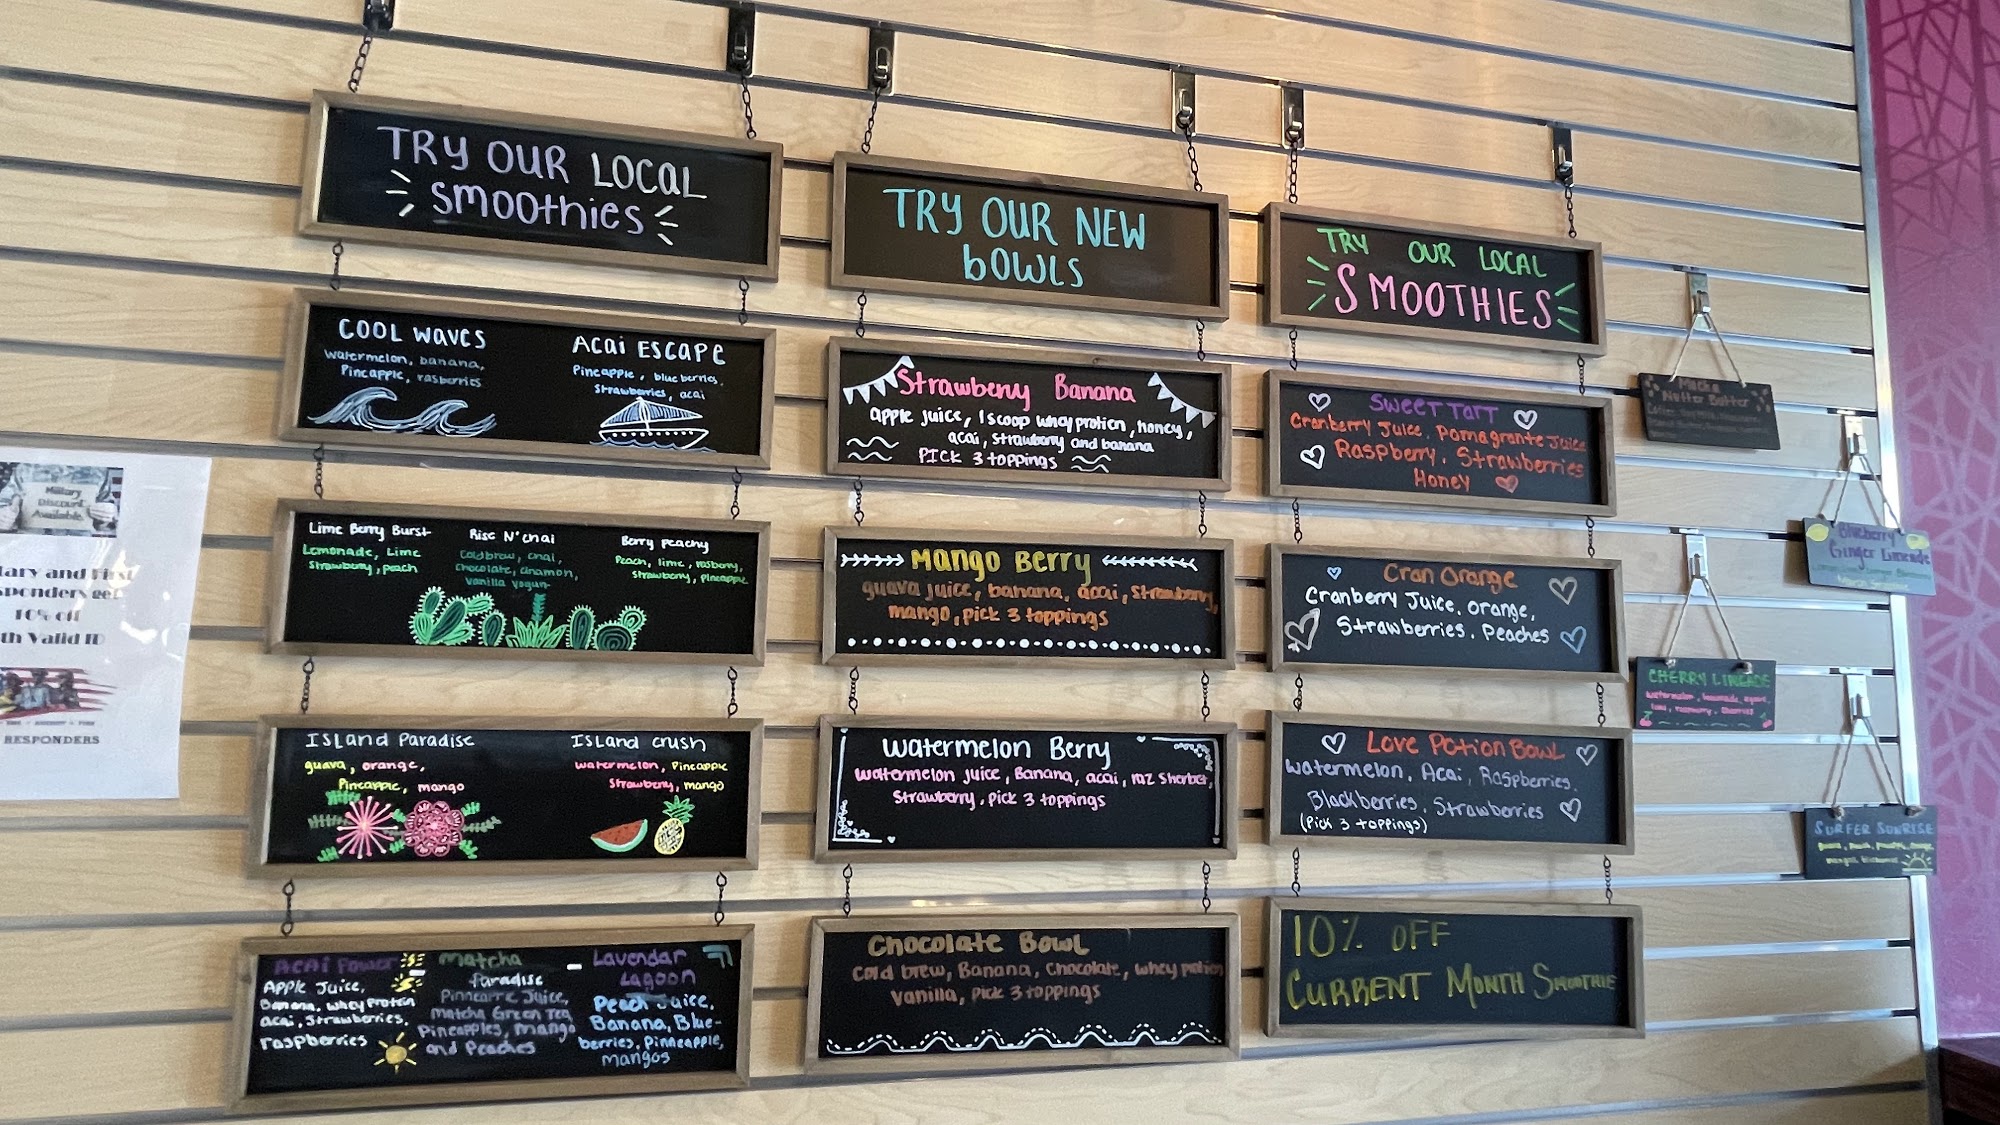 TRY OUR LOCAL
smoothies
COOL WAVES
watermelon, banana,
Pineapple, rasberries
Acai ESCAPE
Pineapple, blueberries,
Strawberries, acai
Lime Berry Burst
Lemonade, Lime
Strawberry, peach
Rise N' chai
Coldbrew, chai,
chocolate, cinamon,
vanilla yogurt
Berry peachy
Peach, lime, rasberry,
strawberry, pineapple
ISLand Paradise
guava, orange,
Pineapple, mango
ISLand crush
watermelon, Pineapple
Strawberry, mango
ACAI Power
APPle Juice,
Banana, whey Protein
acai, Strawberries,
raspberries
Matcha
Paradise
Pinneapple Juice,
Matcha Green Tea,
Pineapples, mango
and Peaches
Lavendar
Lagoon
Peach Juice,
Banana, Blue-
berries, Pinneapple,
mangos
TRY OUR NEW
bOWLS
Strawberry Banana
apple juice, 1 scoop whey protien, honey,
acai, strawberry and banana
PICK 3 toppings
Mango Berry
guava juice, banana, acai, strawberry,
mango, pick 3 toppings
Watermelon Berry
watermelon juice, Banana, acai, raz sherbet,
Strawberry, pick 3 toppings
Chocolate Bowl
Cold brew, Banana, Chocolate, whey protien
Vanilla, pick 3 toppings
TRY OUR LOCAL
SMOOTHIES
SWEET TART
Cranberry Juice, Pomagrante Juice
Raspberry, Strawberries
Honey
Cran Orange
Cranberry Juice, orange,
Strawberries, Peaches
Love Potion Bowl
Watermelon, Acai, Raspberries,
Blackberries, Strawberries
(Pick 3 toppings)
10% OFF
CURRENT MONTH SMOOTHIE
Nutter Butter
Blueberry
Ginger Limeade
CHERRY LIMEADE
watermelon, lemonade, agave,
lime, raspberry, cherries
SURFER SUNRISE
Military
Discount
Available
tary and First
sponders get
10% off
th Valid ID
RESPONDERS